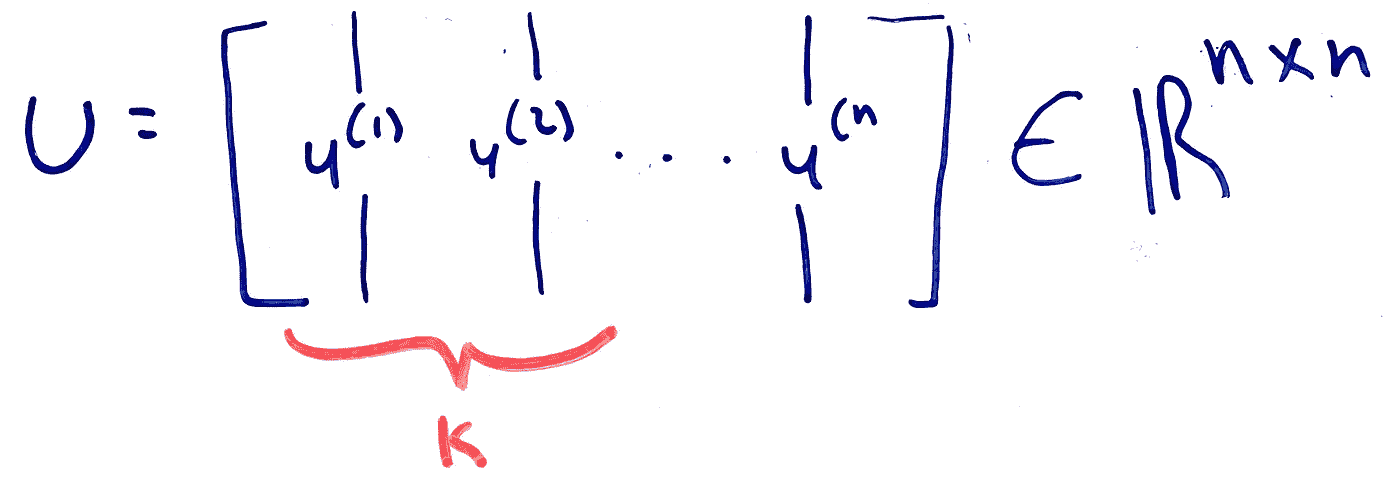 U = [ u^(1) u^(2) . . . u^(n ] ∈ ℝ^n×n
K